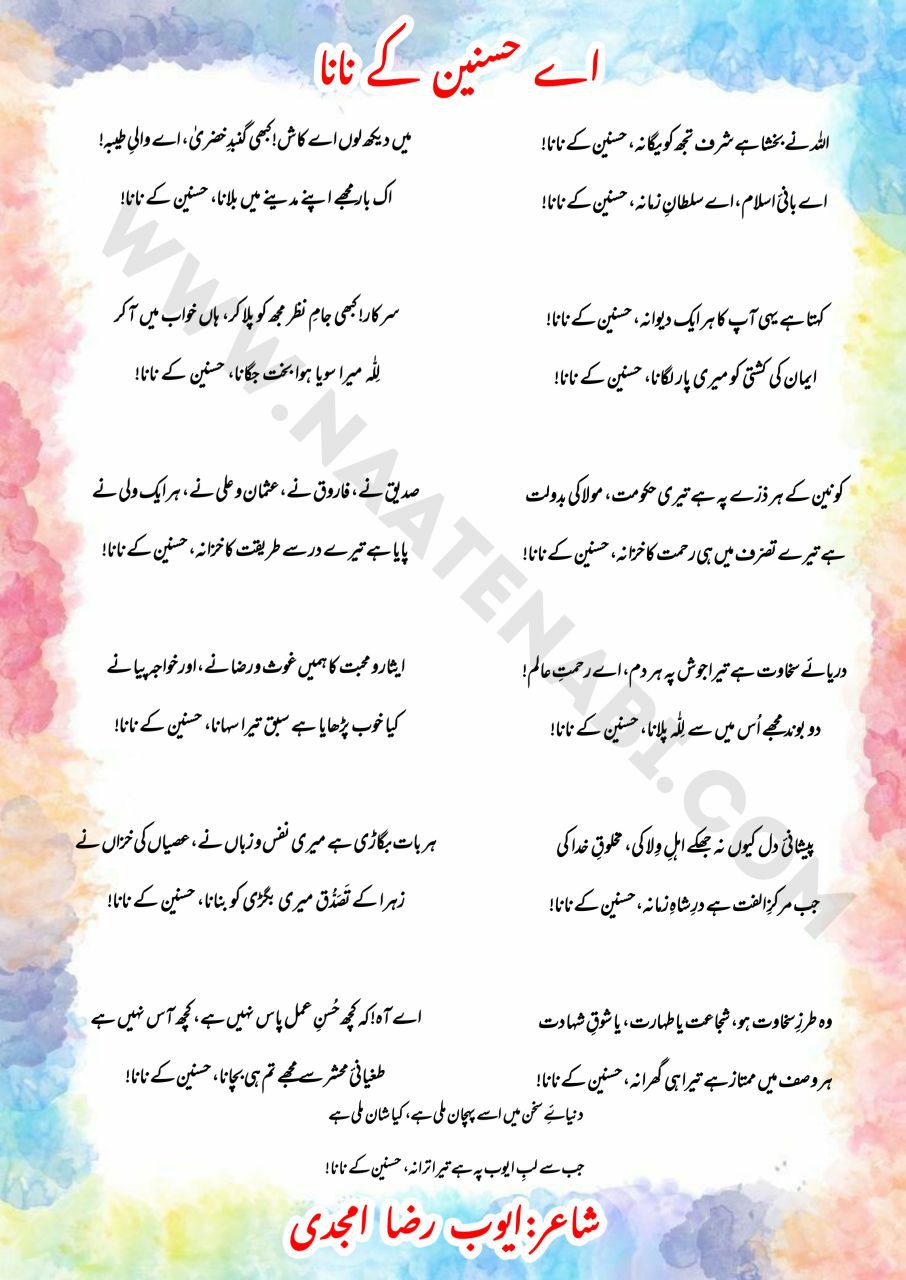 اے حسنین کے نانا
اللہ نے بخشا ہے شرف تجھ کو یگانہ، حسنین کے نانا!
اے بانیٔ اسلام، اے سلطانِ زمانہ، حسنین کے نانا!
کہتا ہے یہی آپ کا ہر ایک دیوانہ، حسنین کے نانا!
ایمان کی کشتی کو میری پار لگانا، حسنین کے نانا!
کونین کے ہر ذرّے پہ ہے تیری حکومت، مولا کی بدولت
ہے تیرے تصرّف میں ہی رحمت کا خزانہ، حسنین کے نانا!
دریائے سخاوت ہے تیرا جوش پہ ہر دم، اے رحمتِ عالم!
دو بوند مجھے اُس میں سے لِلّٰہ پلانا، حسنین کے نانا!
پیشانیٔ دل کیوں نہ جھکے اہلِ وِلا کی، مخلوقِ خدا کی
جب مرکزِ الفت ہے درِ شاہِ زمانہ، حسنین کے نانا!
وہ طرزِ سخاوت ہو، شجاعت یا طہارت، یا شوقِ شہادت
ہر وصف میں ممتاز ہے تیرا ہی گھرانہ، حسنین کے نانا!
میں دیکھ لوں اے کاش! کبھی گنبدِ خضریٰ، اے والیِ طیبہ!
اک بار مجھے اپنے مدینے میں بلانا، حسنین کے نانا!
سرکار! کبھی جامِ نظر مجھ کو پلا کر، ہاں خواب میں آ کر
لِلّٰہ میرا سویا ہوا بخت جگانا، حسنین کے نانا!
صدیق نے، فاروق نے، عثمان و علی نے، ہر ایک ولی نے
پایا ہے تیرے در سے طریقت کا خزانہ، حسنین کے نانا!
ایثار و محبت کا ہمیں غوث و رضا نے، اور خواجہ پیا نے
کیا خوب پڑھایا ہے سبق تیرا سہانا، حسنین کے نانا!
ہر بات بگاڑی ہے میری نفس و زباں نے، عصیاں کی خزاں نے
زہرا کے تَصَدُّق میری بگڑی کو بنانا، حسنین کے نانا!
اے آہ! کہ کچھ حُسنِ عمل پاس نہیں ہے، کچھ آس نہیں ہے
طغیانیٔ محشر سے مجھے تم ہی بچانا، حسنین کے نانا!
دنیائے سخن میں اسے پہچان ملی ہے، کیا شان ملی ہے
جب سے لبِ ایوب پہ ہے تیرا ترانہ، حسنین کے نانا!
شاعر: ایوب رضا امجدی
WWW.NAATENABI.COM